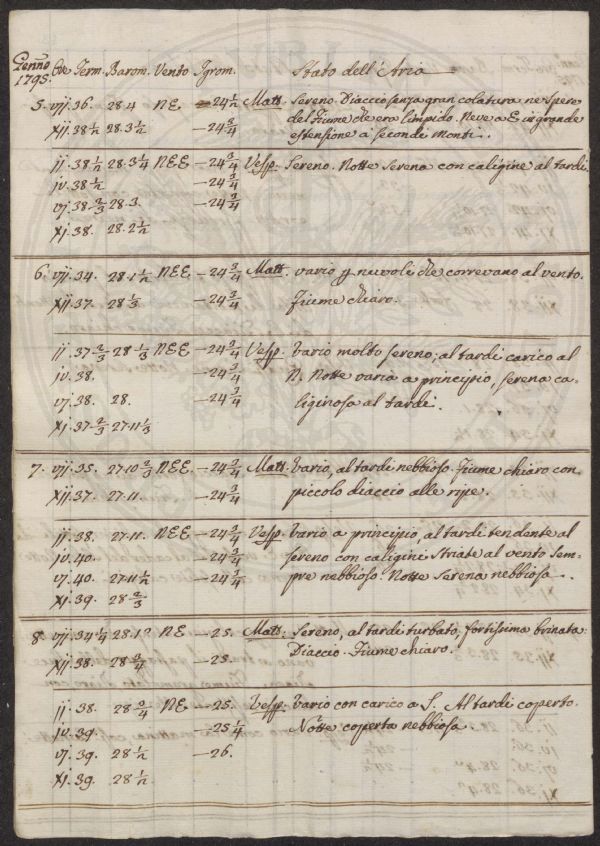 Gennō 1795. Ore Term. Barom. Vento Igrom. Stato dell'Aria
5. vij. 36. 28.4 NE —24 1/2 Matt. Sereno. Diaccio senza gran colatura ne Spere
xij. 38 1/2 28.3 1/2 —24 3/4 del Fiume che era limpido. Neve a E in grande
estensione a' secondi Monti.
ij. 38 1/2 28.3 1/4 NEE —24 3/4 Vesp. Sereno. Notte Serena con caligine al tardi.
iv. 38 1/2 —24 3/4
vj. 38 2/3 28.3. —24 3/4
xj. 38. 28.2 1/2
6. vij. 34. 28.1 1/2 NEE —24 3/4 Matt. vario p nuvoli che correvano al vento.
xij. 37. 28 1/3 —24 3/4 Fiume chiaro.
ij. 37 2/3 28 1/3 NEE —24 3/4 Vesp. Vario molto sereno; al tardi carico al
iv. 38. —24 3/4 N. Notte varia a principio, serena ca-
vj. 38. 28. —24 3/4 liginosa al tardi.
xj. 37 2/3 27.11 1/3
7. vij. 35. 27.10 2/3 NEE —24 3/4 Matt. Vario, al tardi nebbioso. Fiume chiaro con
xij. 37. 27.11 —24 3/4 piccolo diaccio alle ripe.
ij. 38. 27.11. NEE —24 3/4 Vesp. Vario a principio, al tardi tendente al
iv. 40. —24 3/4 sereno con caligini striate al vento sem-
vj. 40. 27.11 1/2 —24 3/4 pre nebbioso. Notte Serena nebbiosa.
xj. 39. 28 2/3
8. vij. 34 1/4 28.1 NE —25. Matt. Sereno, al tardi turbato, fortissima brinata
xij. 38. 28 3/4 —25. Diaccio. Fiume chiaro.
ij. 38. 28 3/4 NE —25. Vesp. Vario con carico a S. Al tardi coperto.
iv. 39. —25 1/4 Notte coperta nebbiosa.
vj. 39. 28 1/2 —26.
xj. 39. 28 1/2